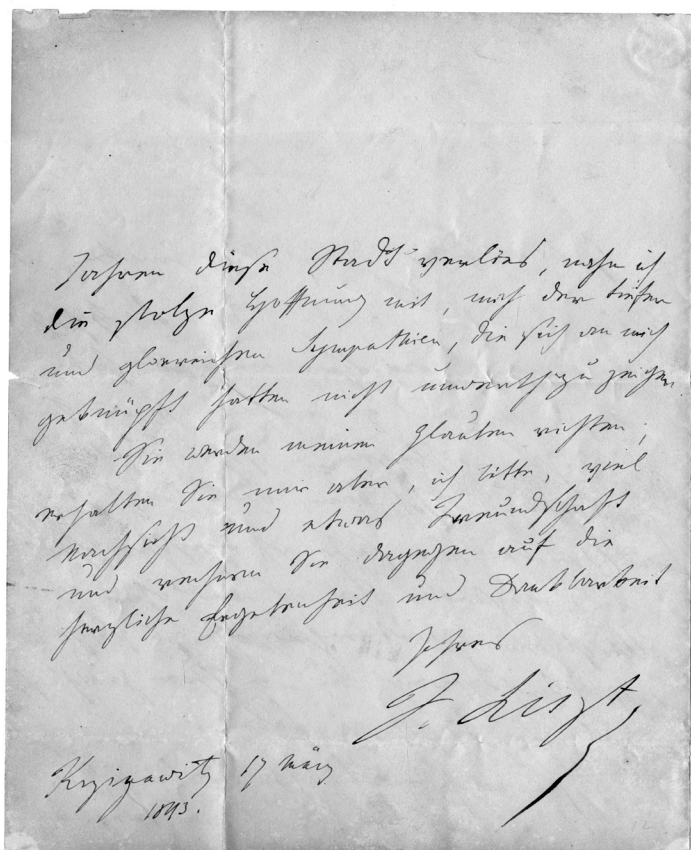 Jahren diese Stadt verließ, nahm ich
die stolze Hoffnung mit, mich der tiefen
und glorreichen Sympathien, die sich an mich
geknüpft hatten nicht unwerth zu zeigen.
Sie werden meinen Glauben richten;
erhalten Sie mir aber, ich bitte, viel
Nachsicht und etwas Freundschaft
und rechnen Sie dagegen auf die
herzliche Ergebenheit und Dankbarkeit
Ihres
F. Liszt
Krzizanowitz 17 März
1843.